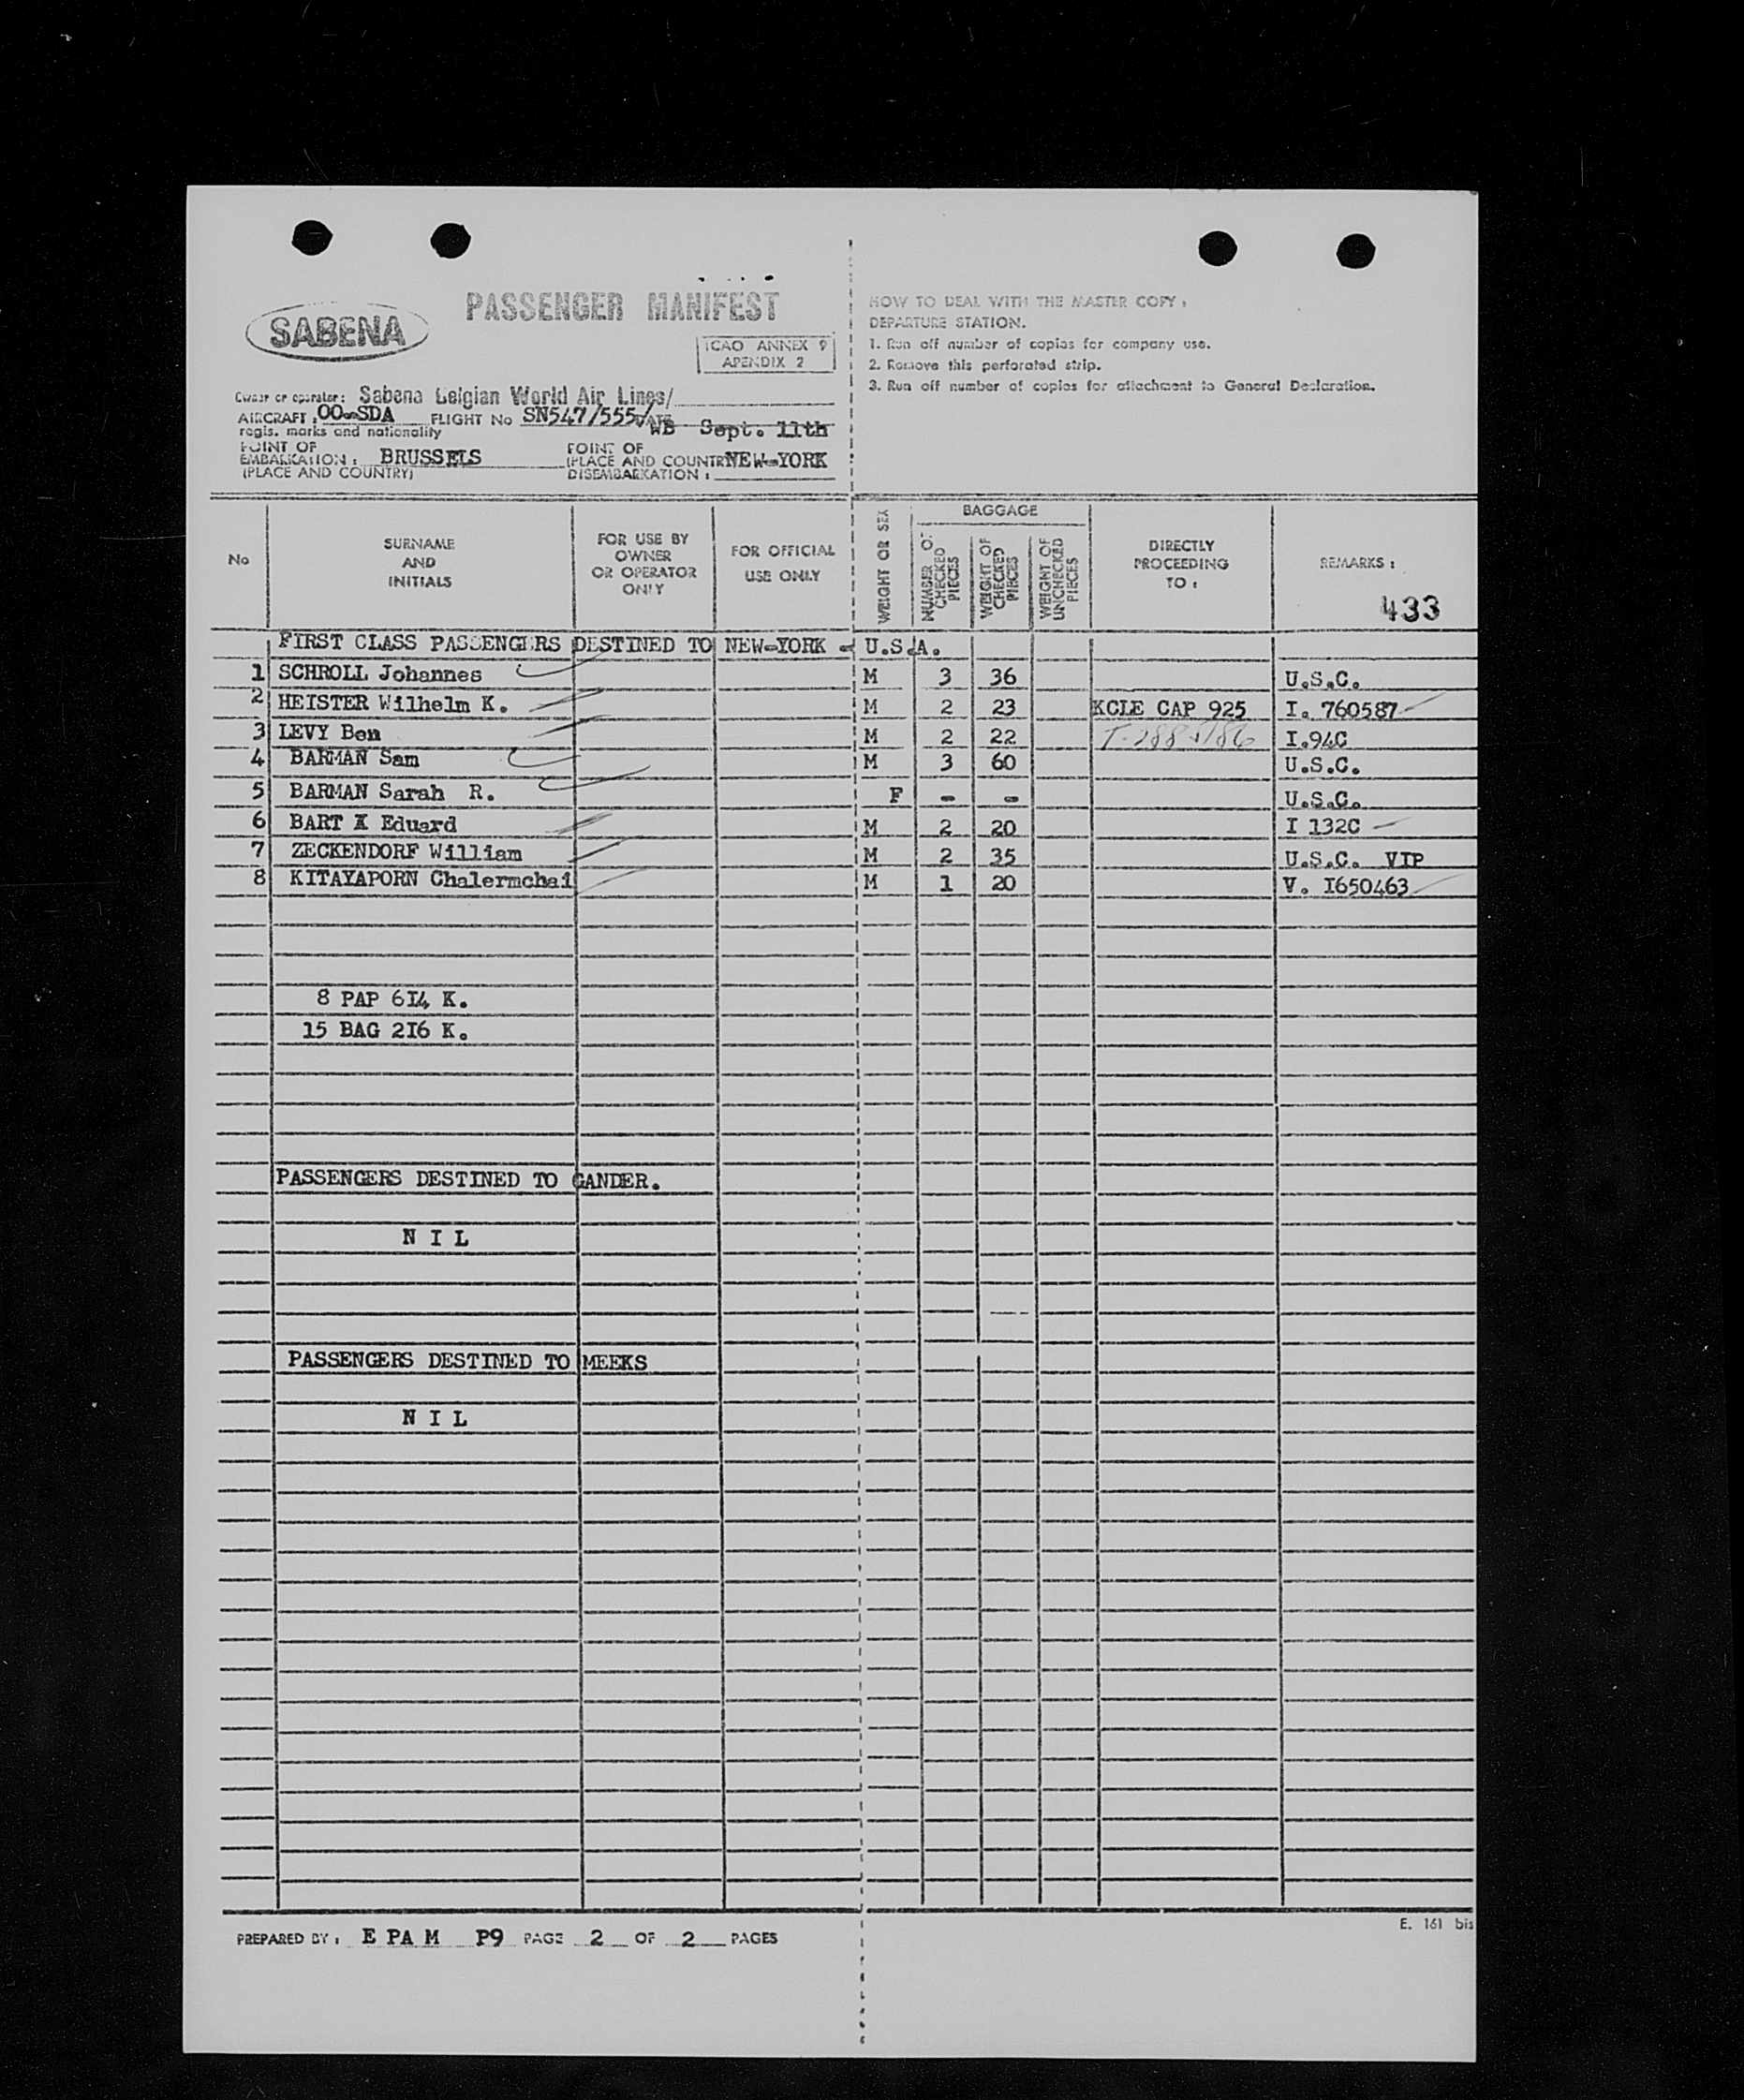 SABENA
PASSENGER MANIFEST
ICAO ANNEX 9
APENDIX 2
Owner or operator: Sabena Belgian World Air Lines/
AIRCRAFT: OO-SDA FLIGHT No SN547/555/ DATE WB Sept. 11th
regis. marks and nationality
POINT OF
EMBARKATION: BRUSSELS
(PLACE AND COUNTRY)
POINT OF
(PLACE AND COUNTR NEW-YORK
DISEMBARKATION:
HOW TO DEAL WITH THE MASTER COPY:
DEPARTURE STATION.
1. Run off number of copies for company use.
2. Remove this perforated strip.
3. Run off number of copies for attachment to General Declaration.
No
SURNAME
AND
INITIALS
FOR USE BY
OWNER
OR OPERATOR
ONLY
FOR OFFICIAL
USE ONLY
WEIGHT OR SEX
BAGGAGE
NUMBER OF
CHECKED
PIECES
WEIGHT OF
CHECKED
PIECES
WEIGHT OF
UNCHECKED
PIECES
DIRECTLY
PROCEEDING
TO:
REMARKS:
433
FIRST CLASS PASSENGERS DESTINED TO NEW-YORK - U.S.A.
1 SCHROLL Johannes M 3 36 U.S.C.
2 HEISTER Wilhelm K. M 2 23 KCLE CAP 925 I. 760587
3 LEVY Ben M 2 22 I.94C
4 BARMAN Sam M 3 60 U.S.C.
5 BARMAN Sarah R. F - - U.S.C.
6 BART X Eduard M 2 20 I 132C
7 ZECKENDORF William M 2 35 U.S.C. VIP
8 KITAYAPORN Chalermchai M 1 20 V. I650463
8 PAP 6I4 K.
15 BAG 2I6 K.
PASSENGERS DESTINED TO GANDER.
N I L
PASSENGERS DESTINED TO MEEKS
N I L
PREPARED BY: E PA M P9 PAGE 2 OF 2 PAGES
E. 161 bis